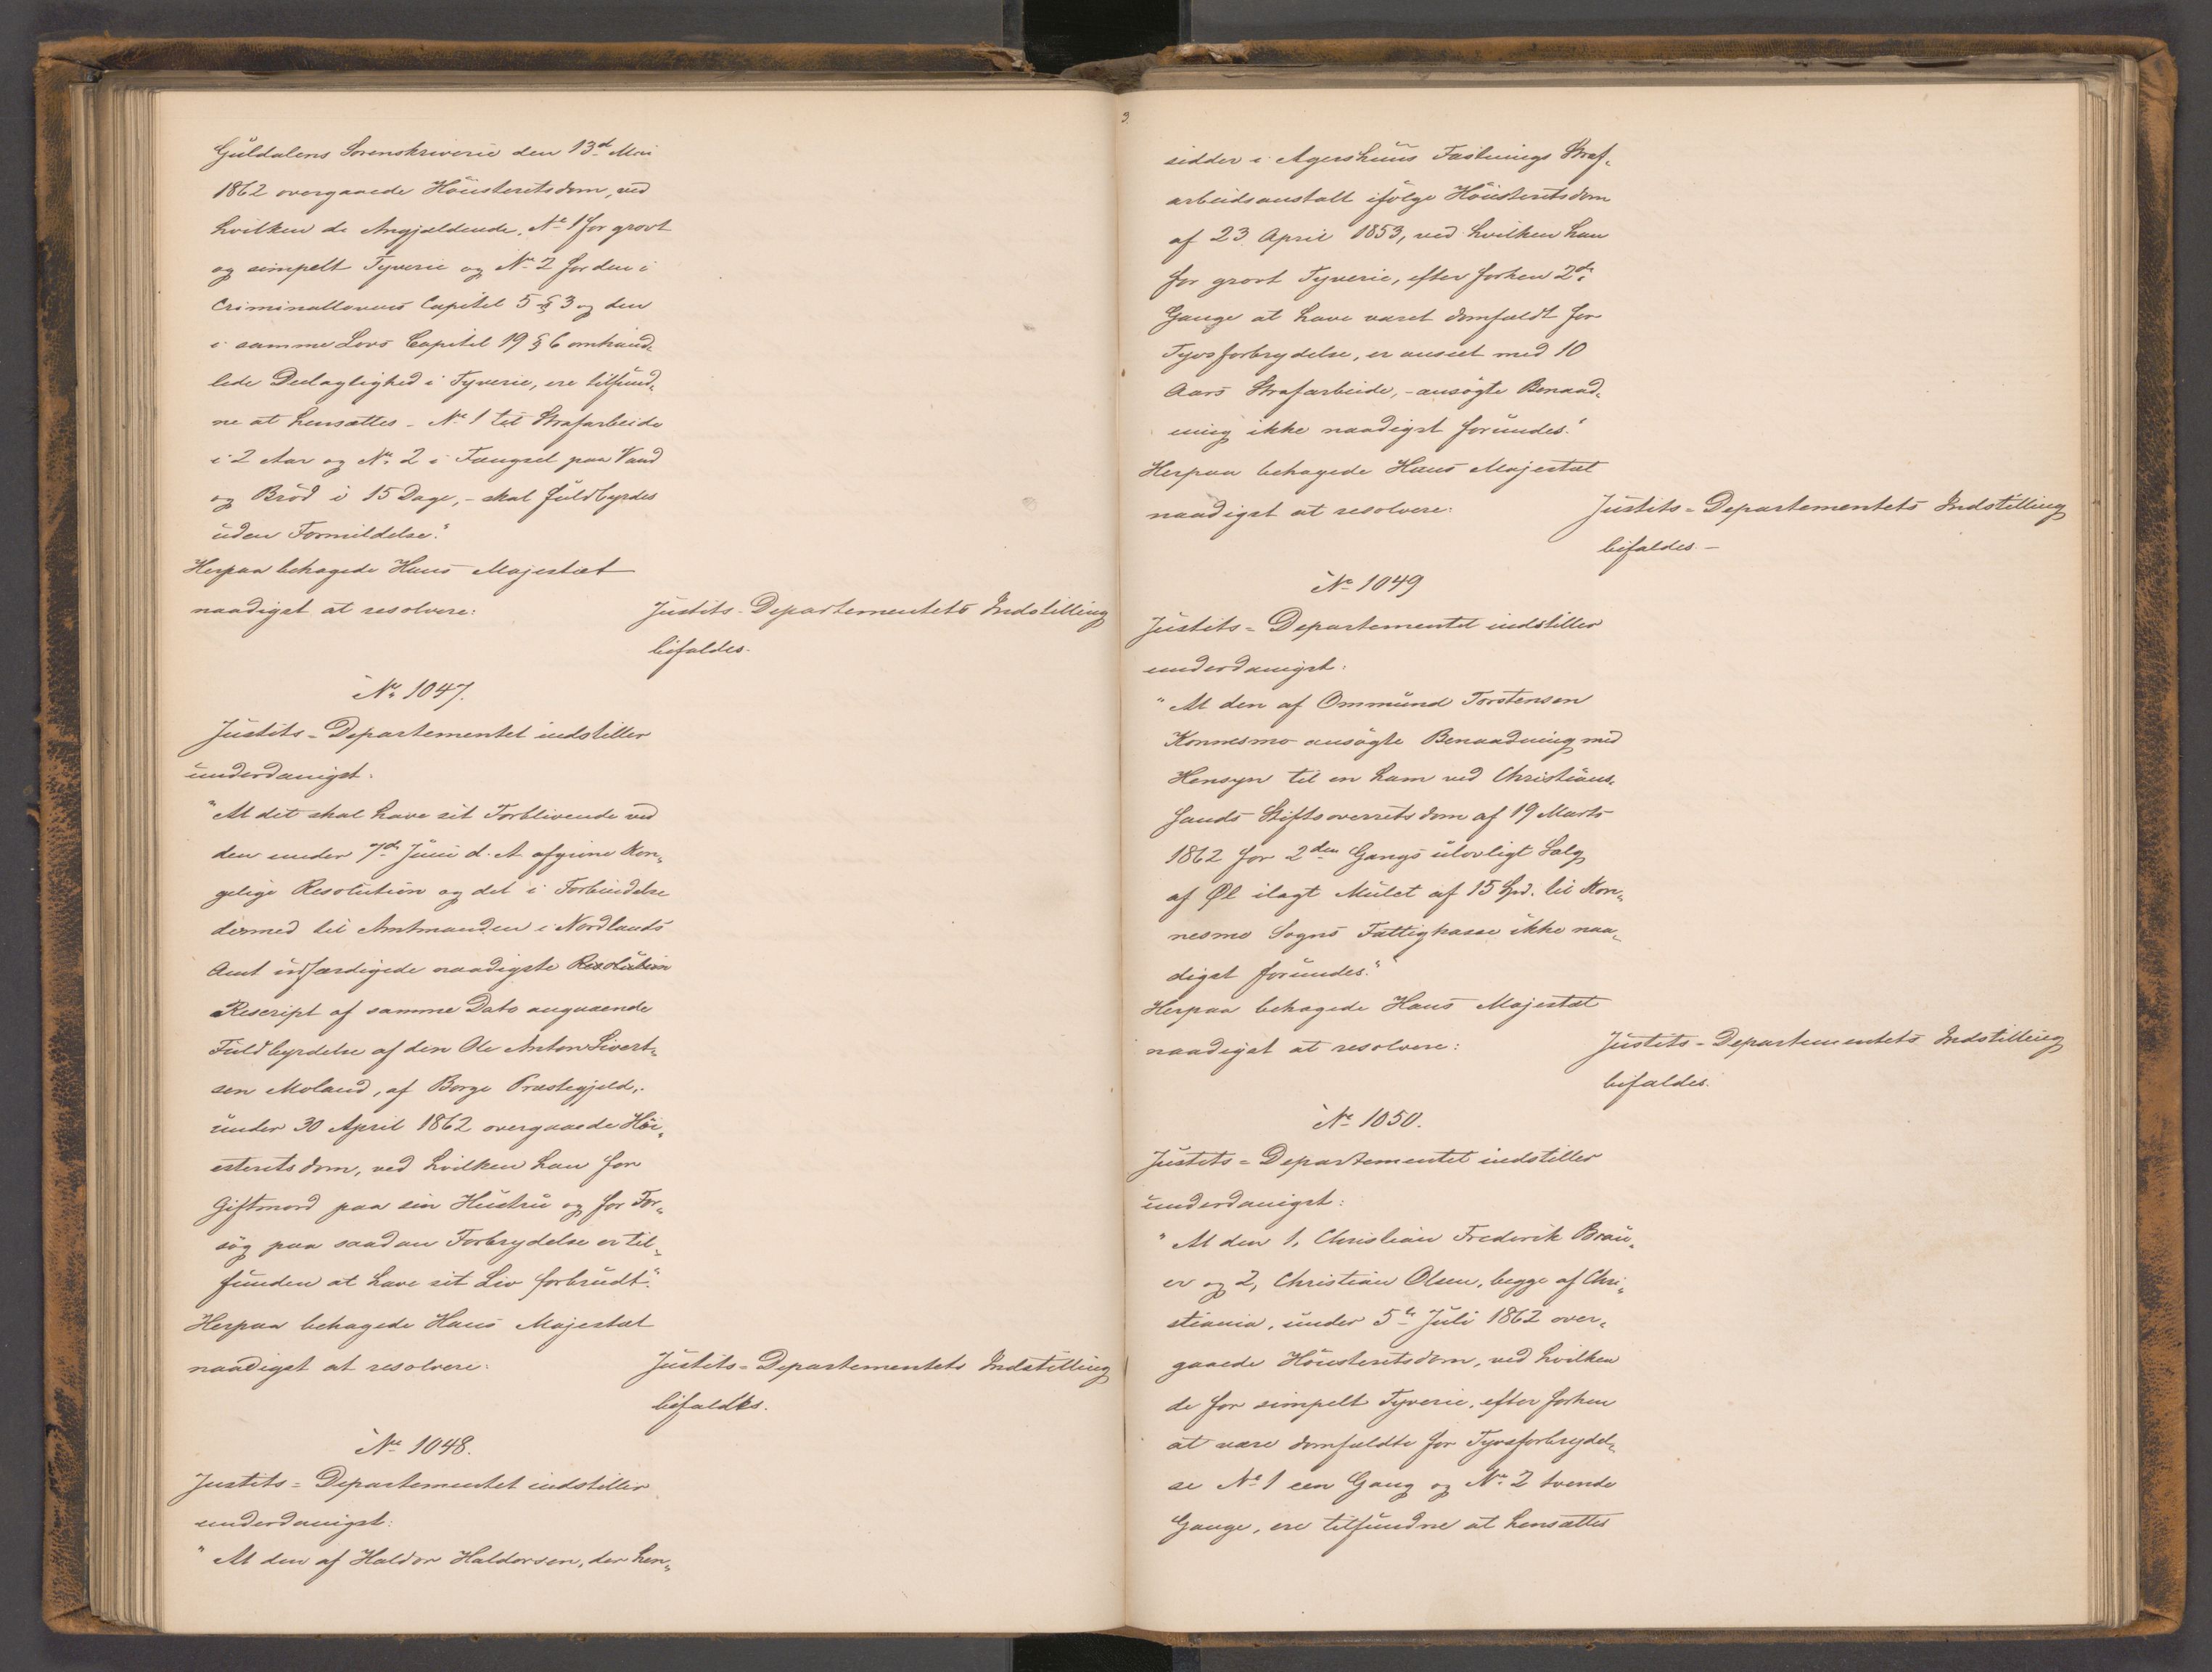 Guldalens Sorenskriverie den 13d Mai
1862 overgaaede Höiesteretsdom, ved
hvilken de Angjældende, No 1 for grovt
og simpelt Tyverie og No 2 for den i
Criminallovens Capitel 5 § 3 og den
i samme Lovs Capitel 19 § 6 omhand„
lede Deelagtighed i Tyverie, ere tilfund„
ne at hensættes - No 1 til Strafarbeide
i 2 Aar og No 2 i Fængsel paa Vand
og Bröd i 15 Dage, - skal fuldbyrdes
uden Formildelse."
Herpaa behagede Hans Majestæt
naadigst at resolvere:
Justits-Departementets Indstilling
bifaldes.
No 1047.
Justits-Departementet indstiller
underdanigst:
"At det skal have sit Forblivende ved
den under 7de Juni d. A. afgivne Kon„
gelige Resolution og det i Forbindelse
dermed til Amtmanden i Nordlands
Amt udfærdigede naadigste Resolution
Rescript af samme Dato angaaende
Fuldbyrdelse af den Ole Anton Sivert„
sen Moland, af Borge Præstegjeld,
under 30 April 1862 overgaaede Höi„
esteretsdom, ved hvilken han for
Giftmord paa sin Hustru og for For„
sög paa saadan Forbrydelse er til„
funden at have sit Liv forbrudt."
Herpaa behagede Hans Majestæt
naadigst at resolvere:
Justits=Departementets Indstilling
bifaldes.
No 1048.
Justits=Departementet indstiller
underdanigst:
"At den af Haldor Haldorsen, der hen„
3.
sidder i Agershuus Fæstnings Straf„
arbeidsanstalt ifölge Höiesteretsdom
af 23 April 1853, ved hvilken han
for grovt Tyverie, efter forhen 2de
Gange at have været domfældt for
Tyvsforbrydelse, er anseet med 10
Aars Strafarbeide, - ansögte Benaad„
ning ikke naadigst forundes."
Herpaa behagede Hans Majestæt
naadigst at resolvere:
Justits=Departementets Indstilling
bifaldes. -
No 1049
Justits=Departementet indstiller
underdanigst:
"At den af Ommund Torstensen
Konnesmo ansögte Benaadning med
Hensyn til en ham ved Christians„
sands Stiftsoverretsdom af 19 Marts
1862 for 2den Gangs ulovligt Salg
af Øl ilagt Mulct af 15 Spd. til Kon„
nesmo Sogns Fattigkasse ikke naa„
digst forundes."
Herpaa behagede Hans Majestæt
naadigst at resolvere:
Justits=Departementets Indstilling
bifaldes.
No 1050.
Justits=Departementet indstiller
underdanigst:
"At den 1, Christian Frederik Brau„
er og 2, Christian Olsen, begge af Chri„
stiania, under 5te Juli 1862 over„
gaaede Höiesteretsdom, ved hvilken
de for simpelt Tyverie, efter forhen
at være domfældte for Tyvsforbrydel„
se No 1 een Gang og No 2 tvende
Gange, ere tilfundne at hensættes